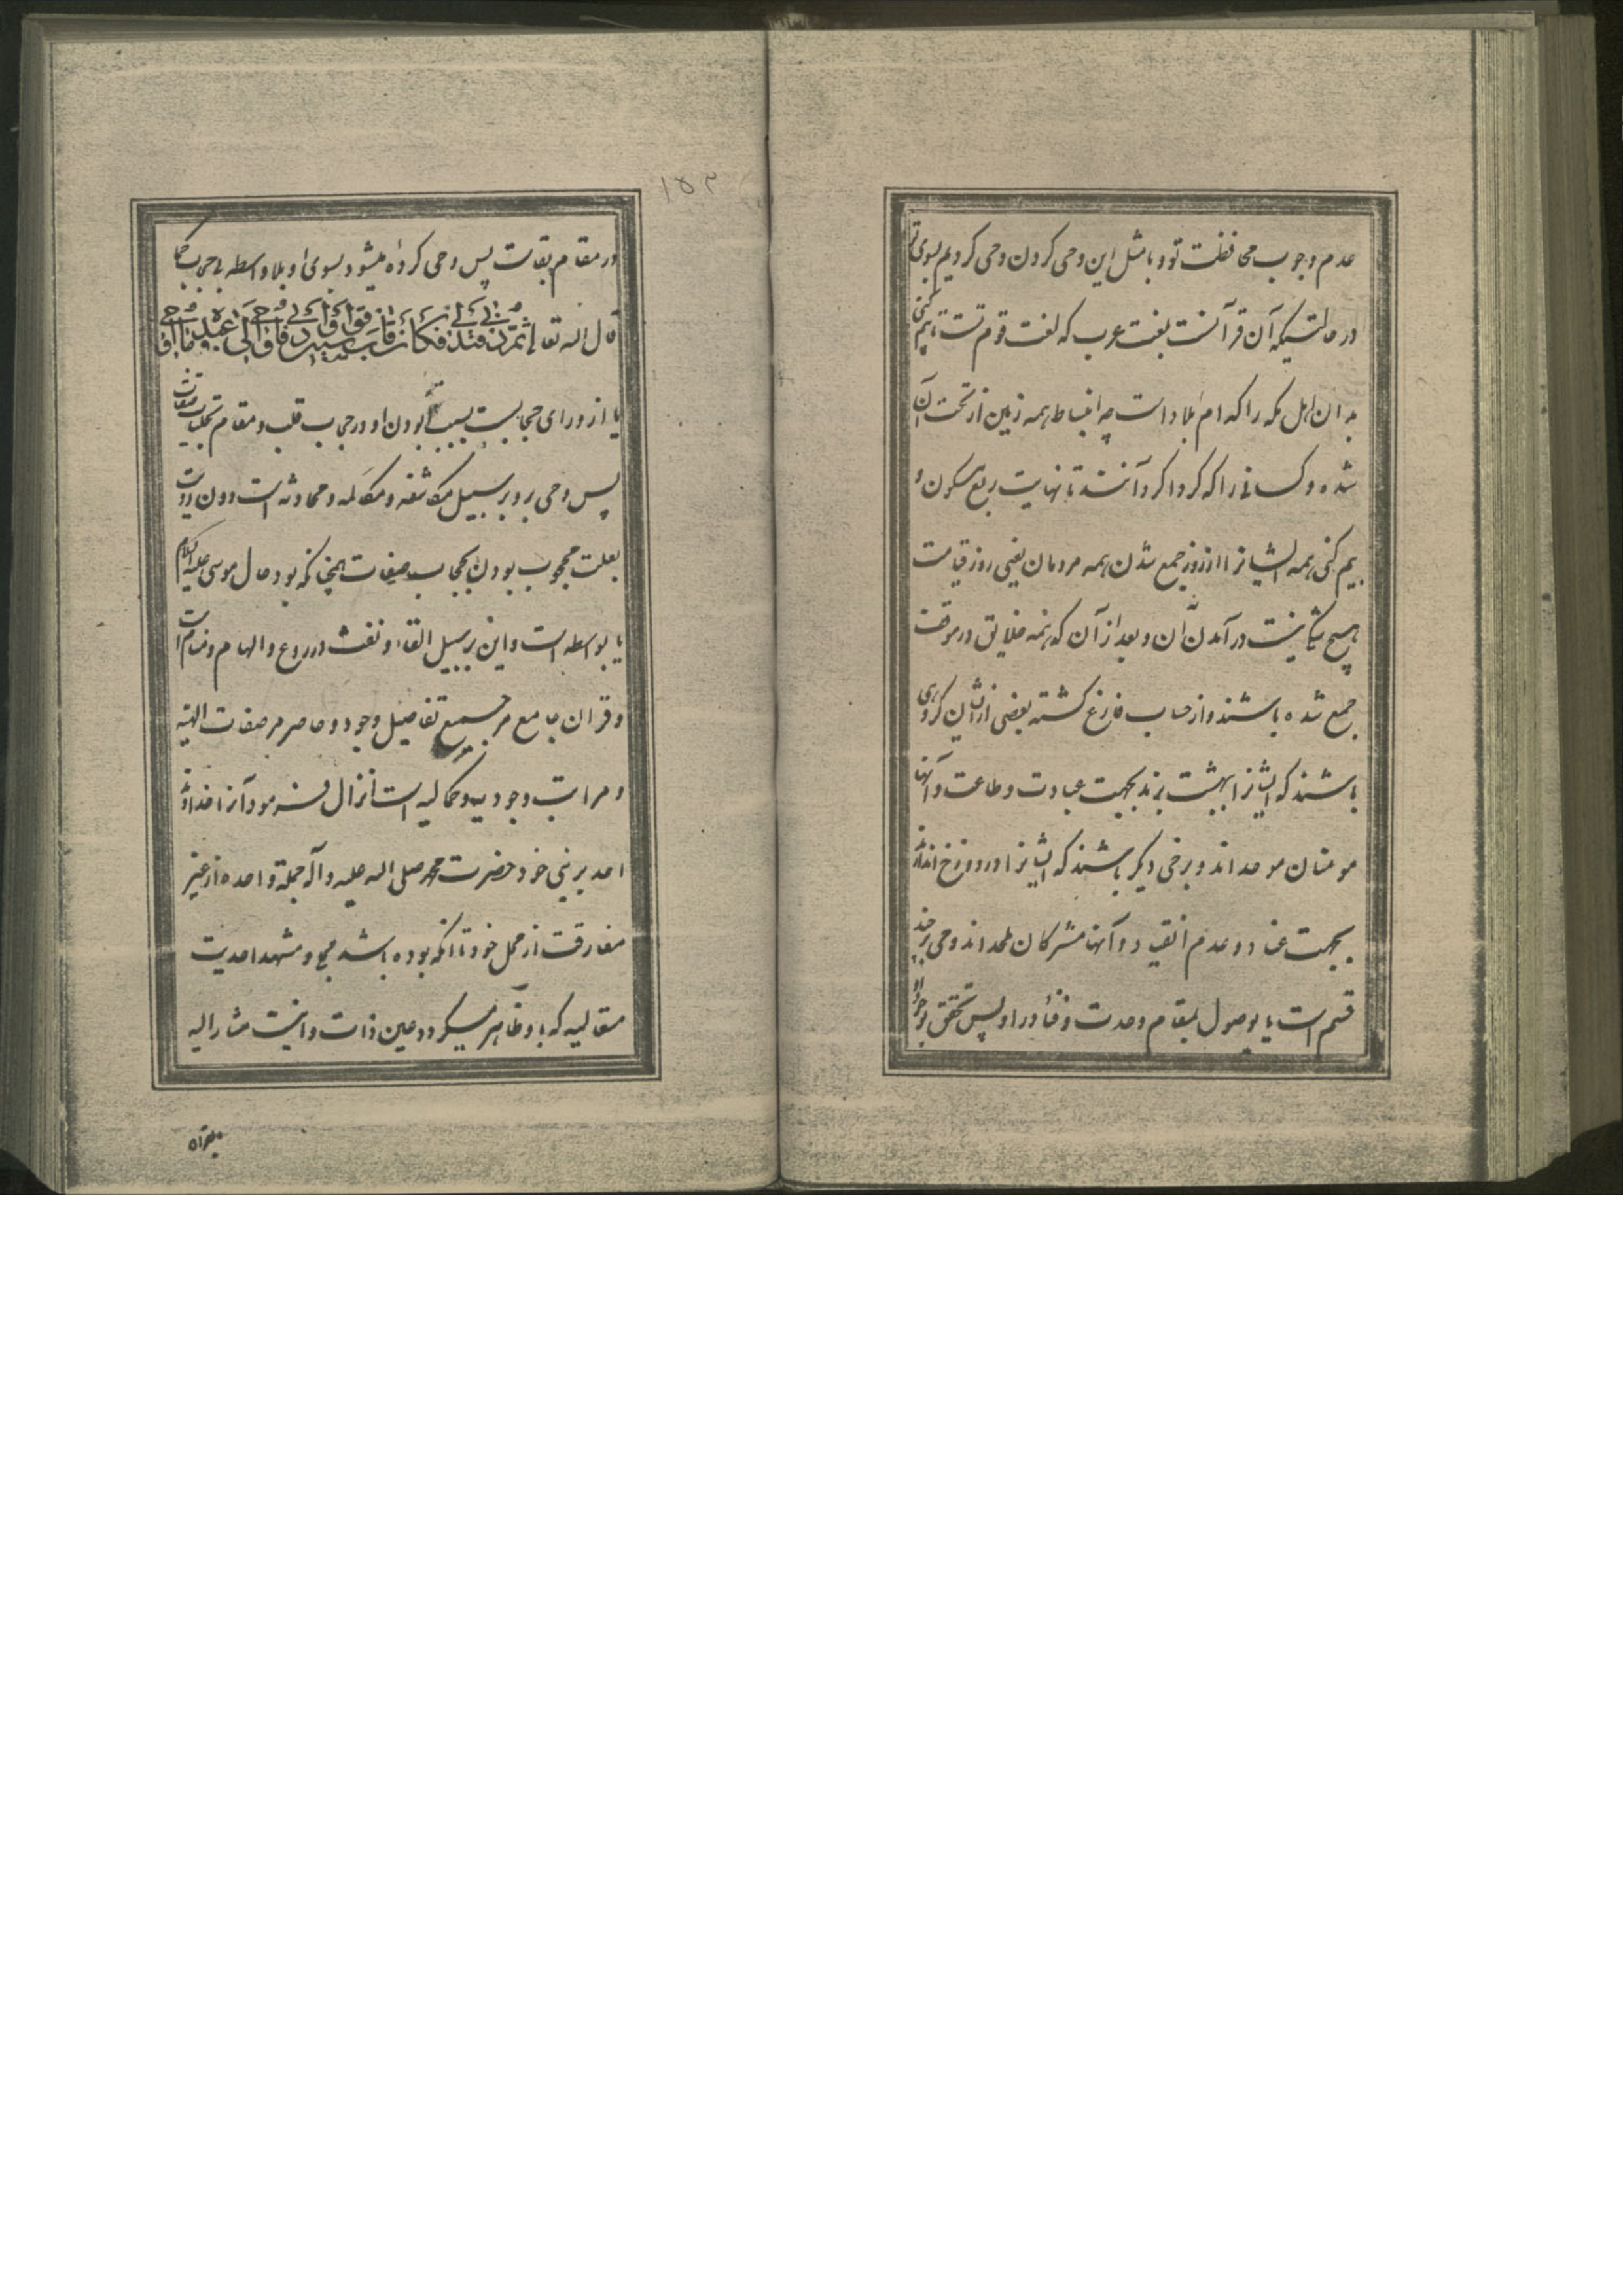 عدم وجوب محافظت تو و بامثل این وحی کردن وحی کردیم بسوی تو
در حالتیکه آن قرآنست بلغت عرب که لغت قوم تست تا بیم کنی
بدان اهل مکه را که ام بلاد است چه انبساط همه زمین از تحت آن
شده و کسانی را که گرداگرد آنند تا نهایت ربع مسکون و
بیم کنی همه ایشانرا از روز جمع شدن همه مردمان یعنی روز قیامت
هیچ شکی نیست در آمدن آن و بعد از آن که همه خلایق در موقف
جمع شده باشند و از حساب فارغ گشته بعضی از ایشان گروهی
باشند که ایشانرا ببهشت برند بجهت عبادت و طاعت و آنها
مومنان موحداند و برخی دیگر باشند که ایشانرا در دوزخ اندازند
بجهت عناد و عدم انقیاد و آنها مشرکان ملحداند و وحی بر چند
قسم است یا بوصول بمقام وحدت و فنا در او پس تحقق بوجود او
۱۵۲
در مقام بقاست پس وحی کرده میشود بسوی او بلا واسطه و حجاب کما
قال الله تعا ثُمَّ دَنی فَتَدَلّی فَکانَ قابَ قَوسَینِ اَو اَدنی فَاَوحی اِلی عَبدِهِ ما اَوحی
یا از ورای حجابست بسبب بودن او در حجاب قلب و مقام تجلیات صفات
پس وحی برو بر سبیل مکاشفه و مکالمه و محادثه است دون رویت
بعلت محجوب بودن بحجاب صفات همچنانکه بود حال موسی علیه السلام
یا بواسطه است و این بر سبیل القاء و نفث در روع و الهام و منام است
و قران جامع مر جمیع تفاصیل وجود و حاصر مر صفات الهیه
و مراتب وجودیه و کمالیه است انزال فرمود آنرا خداوند
احد بر نبی خود حضرت محمد صلی الله علیه و آله جملة واحده از غیر
مفارقت از محل خود تا انکه بوده باشد و مشهد احدیت
متعالیه که باو ظاهر میگردد عین ذات و انیت مشار الیه
بقران